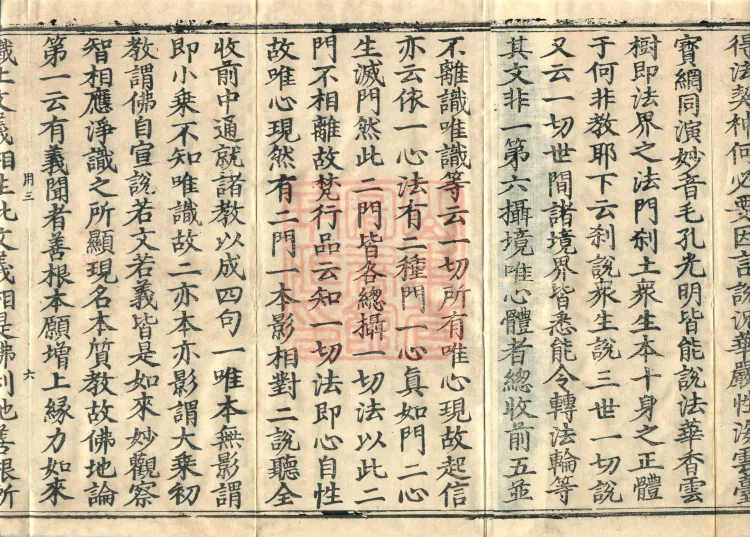 得法契神何必要因言說況華嚴性海雲臺
寶網同演妙音毛孔光明皆能說法華香雲
樹即法界之法門刹土衆生本十身之正體
于何非教耶下云刹說衆生說三世一切說
又云一切世間諸境界皆悉能令轉法輪等
其文非一第六攝境唯心體者總收前五並
不離識唯識等云一切所有唯心現故起信
亦云依一心法有二種門一心眞如門二心
生滅門然此二門皆各總攝一切法以此二
門不相離故梵行品云知一切法即心自性
故唯心現然有二門一本影相對二說聽全
收前中通就諸教以成四句一唯本無影謂
即小乘不知唯識故二亦本亦影謂大乘初
教謂佛自宣說若文若義皆是如來妙觀察
智相應淨識之所顯現名本質教故佛地論
第一云有義聞者善根本願增上緣力如來
用三 六
識上文義相生此文義相是佛利他善根所